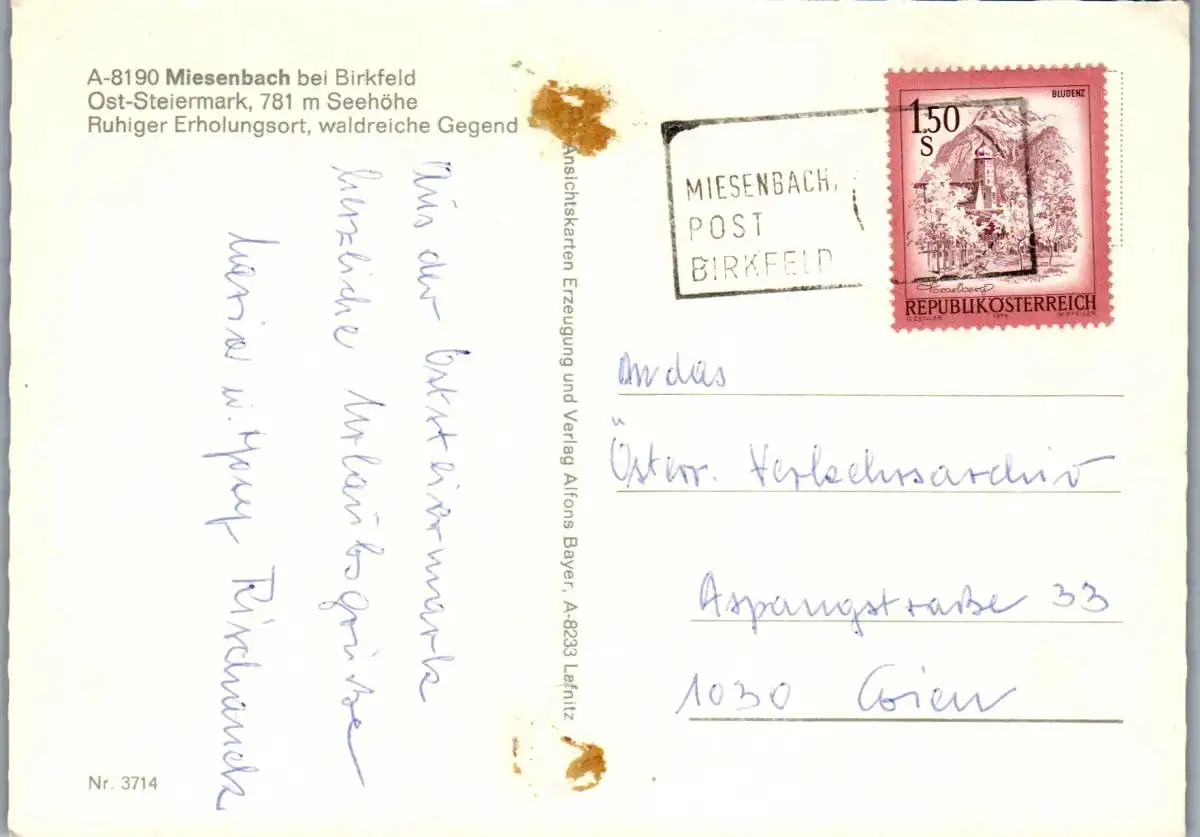 A-8190 Miesenbach bei Birkfeld
Ost-Steiermark, 781 m Seehöhe
Ruhiger Erholungsort, waldreiche Gegend
Aus der Oststeiermark
herzliche Urlaubsgrüße
Maria u. Josef
Nr. 3714
Ansichtskarten Erzeugung und Verlag Alfons Bayer, A-8233 Lafnitz
MIESENBACH,
POST
BIRKFELD
BLUDENZ
1.50
S
Vorarlberg
REPUBLIK ÖSTERREICH
O. ZEILER 1974 W. PFEILER
An das
Österr. Verkehrsarchiv
Aspangstraße 33
1030 Wien